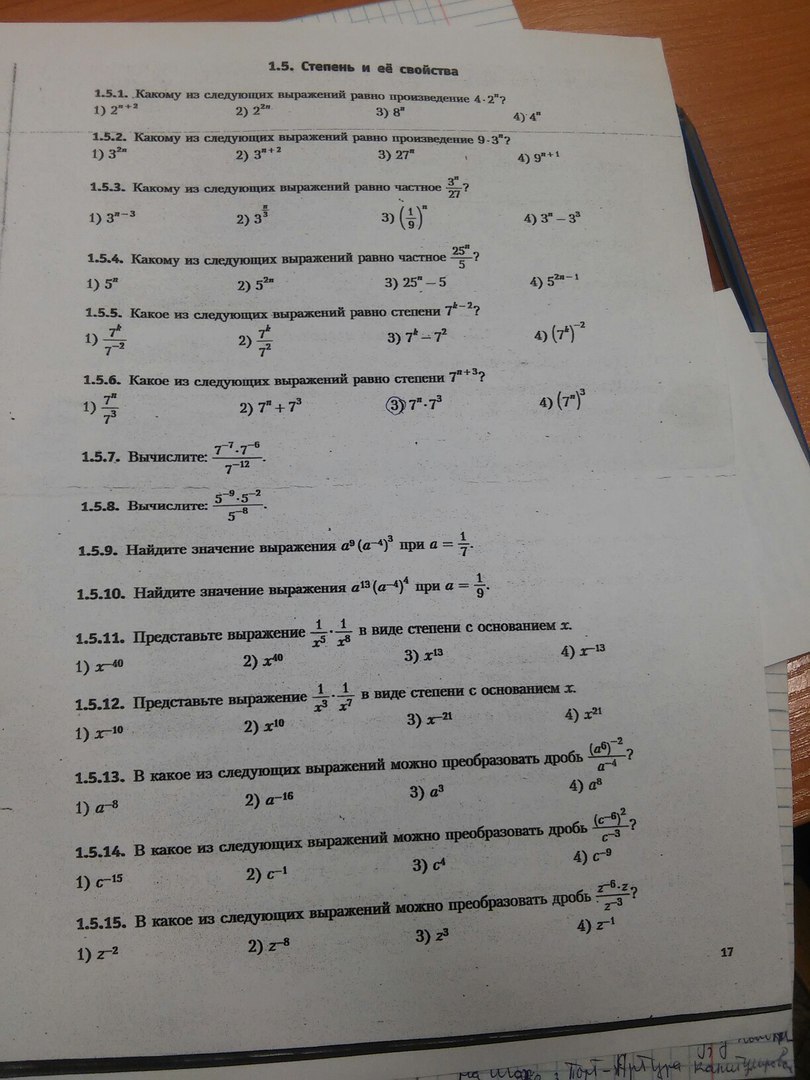 1.5. Степень и её свойства
1.5.1. Какому из следующих выражений равно произведение 4·2ⁿ?
1) 2ⁿ⁺² 2) 2²ⁿ 3) 8ⁿ 4) 4ⁿ
1.5.2. Какому из следующих выражений равно произведение 9·3ⁿ?
1) 3²ⁿ 2) 3ⁿ⁺² 3) 27ⁿ 4) 9ⁿ⁺¹
1.5.3. Какому из следующих выражений равно частное 3ⁿ/27?
1) 3ⁿ⁻³ 2) 3^(n/3) 3) (1/9)ⁿ 4) 3ⁿ − 3³
1.5.4. Какому из следующих выражений равно частное 25ⁿ/5?
1) 5ⁿ 2) 5²ⁿ 3) 25ⁿ − 5 4) 5²ⁿ⁻¹
1.5.5. Какое из следующих выражений равно степени 7ᵏ⁻²?
1) 7ᵏ/7⁻² 2) 7ᵏ/7² 3) 7ᵏ − 7² 4) (7ᵏ)⁻²
1.5.6. Какое из следующих выражений равно степени 7ⁿ⁺³?
1) 7ⁿ/7³ 2) 7ⁿ + 7³ 3) 7ⁿ·7³ 4) (7ⁿ)³
1.5.7. Вычислите: 7⁻⁷·7⁻⁶/7⁻¹².
1.5.8. Вычислите: 5⁻⁹·5⁻²/5⁻⁸.
1.5.9. Найдите значение выражения a⁹(a⁻⁴)³ при a = 1/7.
1.5.10. Найдите значение выражения a¹³(a⁻⁴)⁴ при a = 1/9.
1.5.11. Представьте выражение 1/x⁵ · 1/x⁸ в виде степени с основанием x.
1) x⁻⁴⁰ 2) x⁴⁰ 3) x¹³ 4) x⁻¹³
1.5.12. Представьте выражение 1/x³ · 1/x⁷ в виде степени с основанием x.
1) x⁻¹⁰ 2) x¹⁰ 3) x⁻²¹ 4) x²¹
1.5.13. В какое из следующих выражений можно преобразовать дробь (a⁶)⁻²/a⁻⁴?
1) a⁻⁸ 2) a⁻¹⁶ 3) a³ 4) a⁸
1.5.14. В какое из следующих выражений можно преобразовать дробь (c⁻⁶)²/c⁻³?
1) c⁻¹⁵ 2) c⁻¹ 3) c⁴ 4) c⁻⁹
1.5.15. В какое из следующих выражений можно преобразовать дробь z⁻⁶·z/z⁻³?
1) z⁻² 2) z⁻⁸ 3) z³ 4) z⁻¹
17